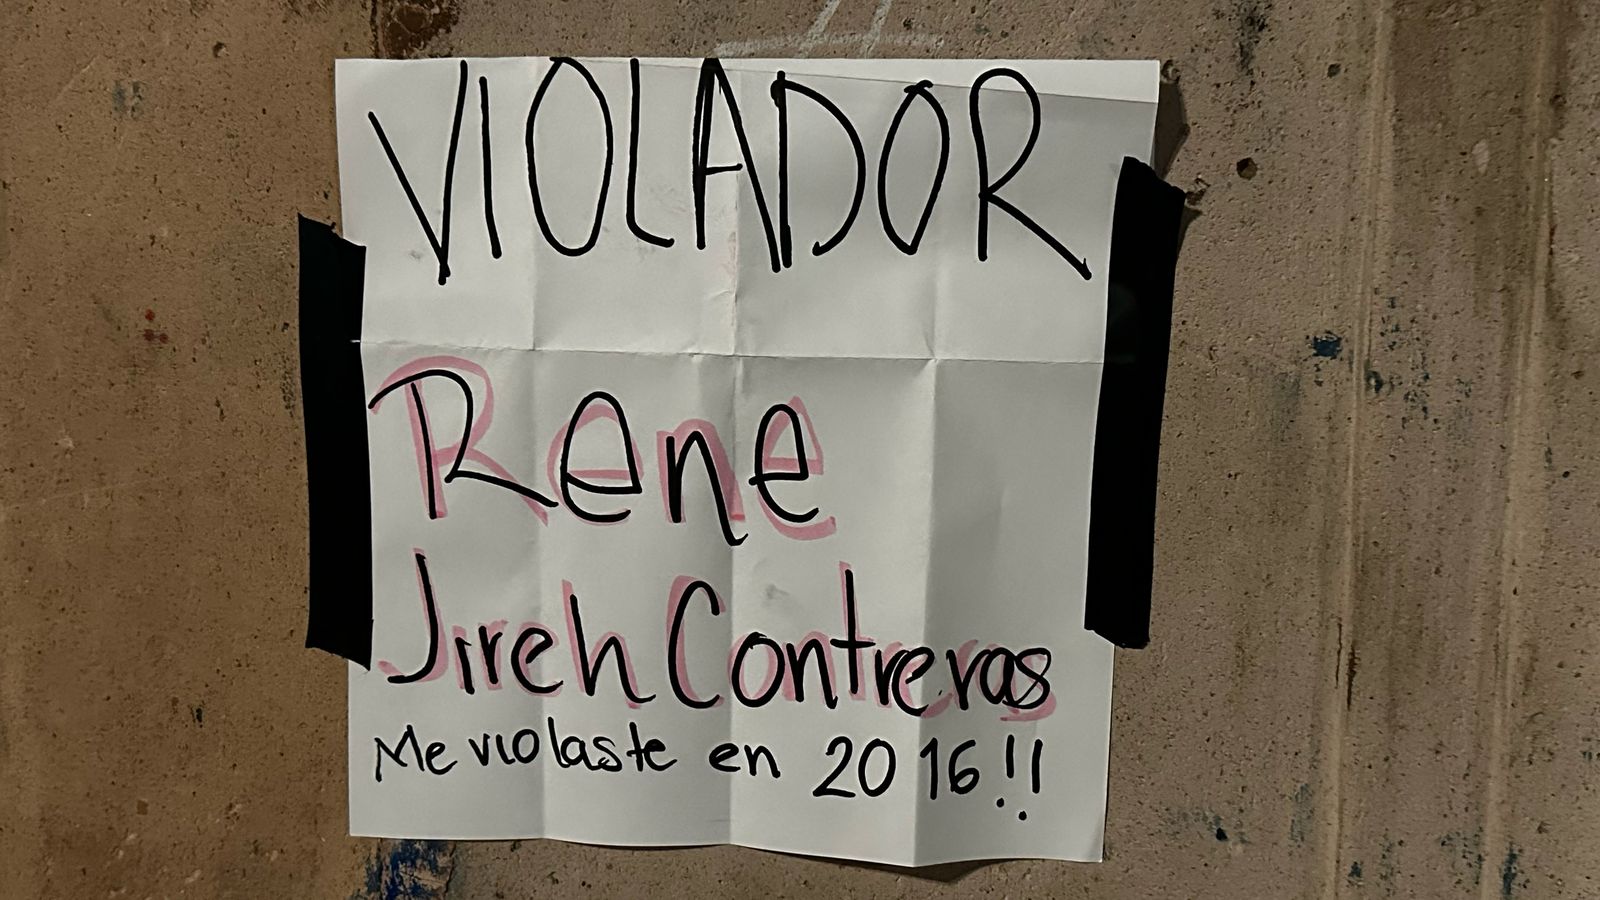 VIOLADOR
Rene
Jireh Contreras
Me violaste en 2016!!